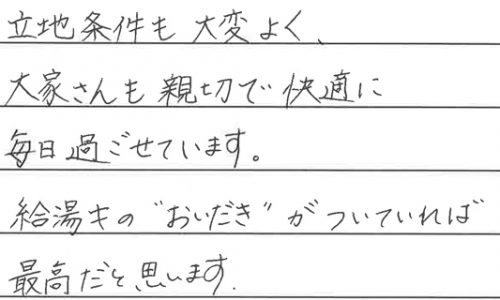 立地条件も大変よく、
大家さんも親切で快適に
毎日過ごせています。
給湯キの“おいだき”がついていれば
最高だと思います.